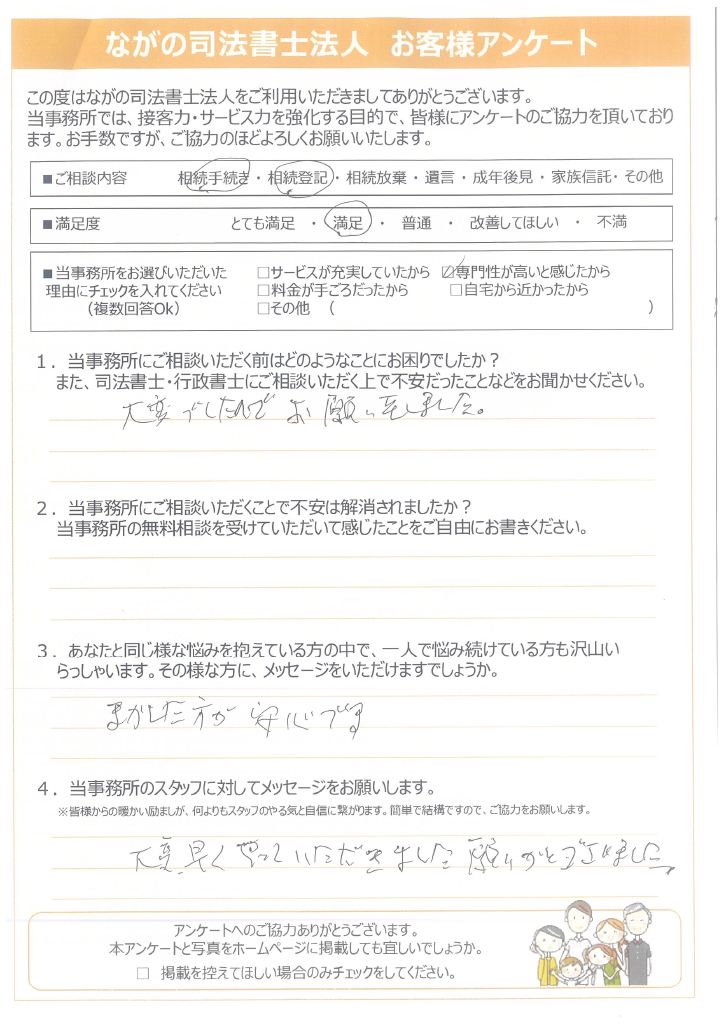 ながの司法書士法人 お客様アンケート
この度はながの司法書士法人をご利用いただきましてありがとうございます。
当事務所では、接客力・サービス力を強化する目的で、皆様にアンケートのご協力を頂いており
ます。お手数ですが、ご協力のほどよろしくお願いいたします。
■ご相談内容 相続手続き・相続登記・相続放棄・遺言・成年後見・家族信託・その他
■満足度 とても満足 ・ 満足 ・ 普通 ・ 改善してほしい ・ 不満
■当事務所をお選びいただいた □サービスが充実していたから ☑専門性が高いと感じたから
理由にチェックを入れてください □料金が手ごろだったから □自宅から近かったから
（複数回答Ok） □その他 （ ）
１．当事務所にご相談いただく前はどのようなことにお困りでしたか？
また、司法書士・行政書士にご相談いただく上で不安だったことなどをお聞かせください。
大変でしたので お願いをしました。
２．当事務所にご相談いただくことで不安は解消されましたか？
当事務所の無料相談を受けていただいて感じたことをご自由にお書きください。
３．あなたと同じ様な悩みを抱えている方の中で、一人で悩み続けている方も沢山い
らっしゃいます。その様な方に、メッセージをいただけますでしょうか。
まかした方が 安心です
４．当事務所のスタッフに対してメッセージをお願いします。
※皆様からの暖かい励ましが、何よりもスタッフのやる気と自信に繋がります。簡単で結構ですので、ご協力をお願いします。
大変早くやっていただきました
アンケートへのご協力ありがとうございます。
本アンケートと写真をホームページに掲載しても宜しいでしょうか。
□ 掲載を控えてほしい場合のみチェックをしてください。